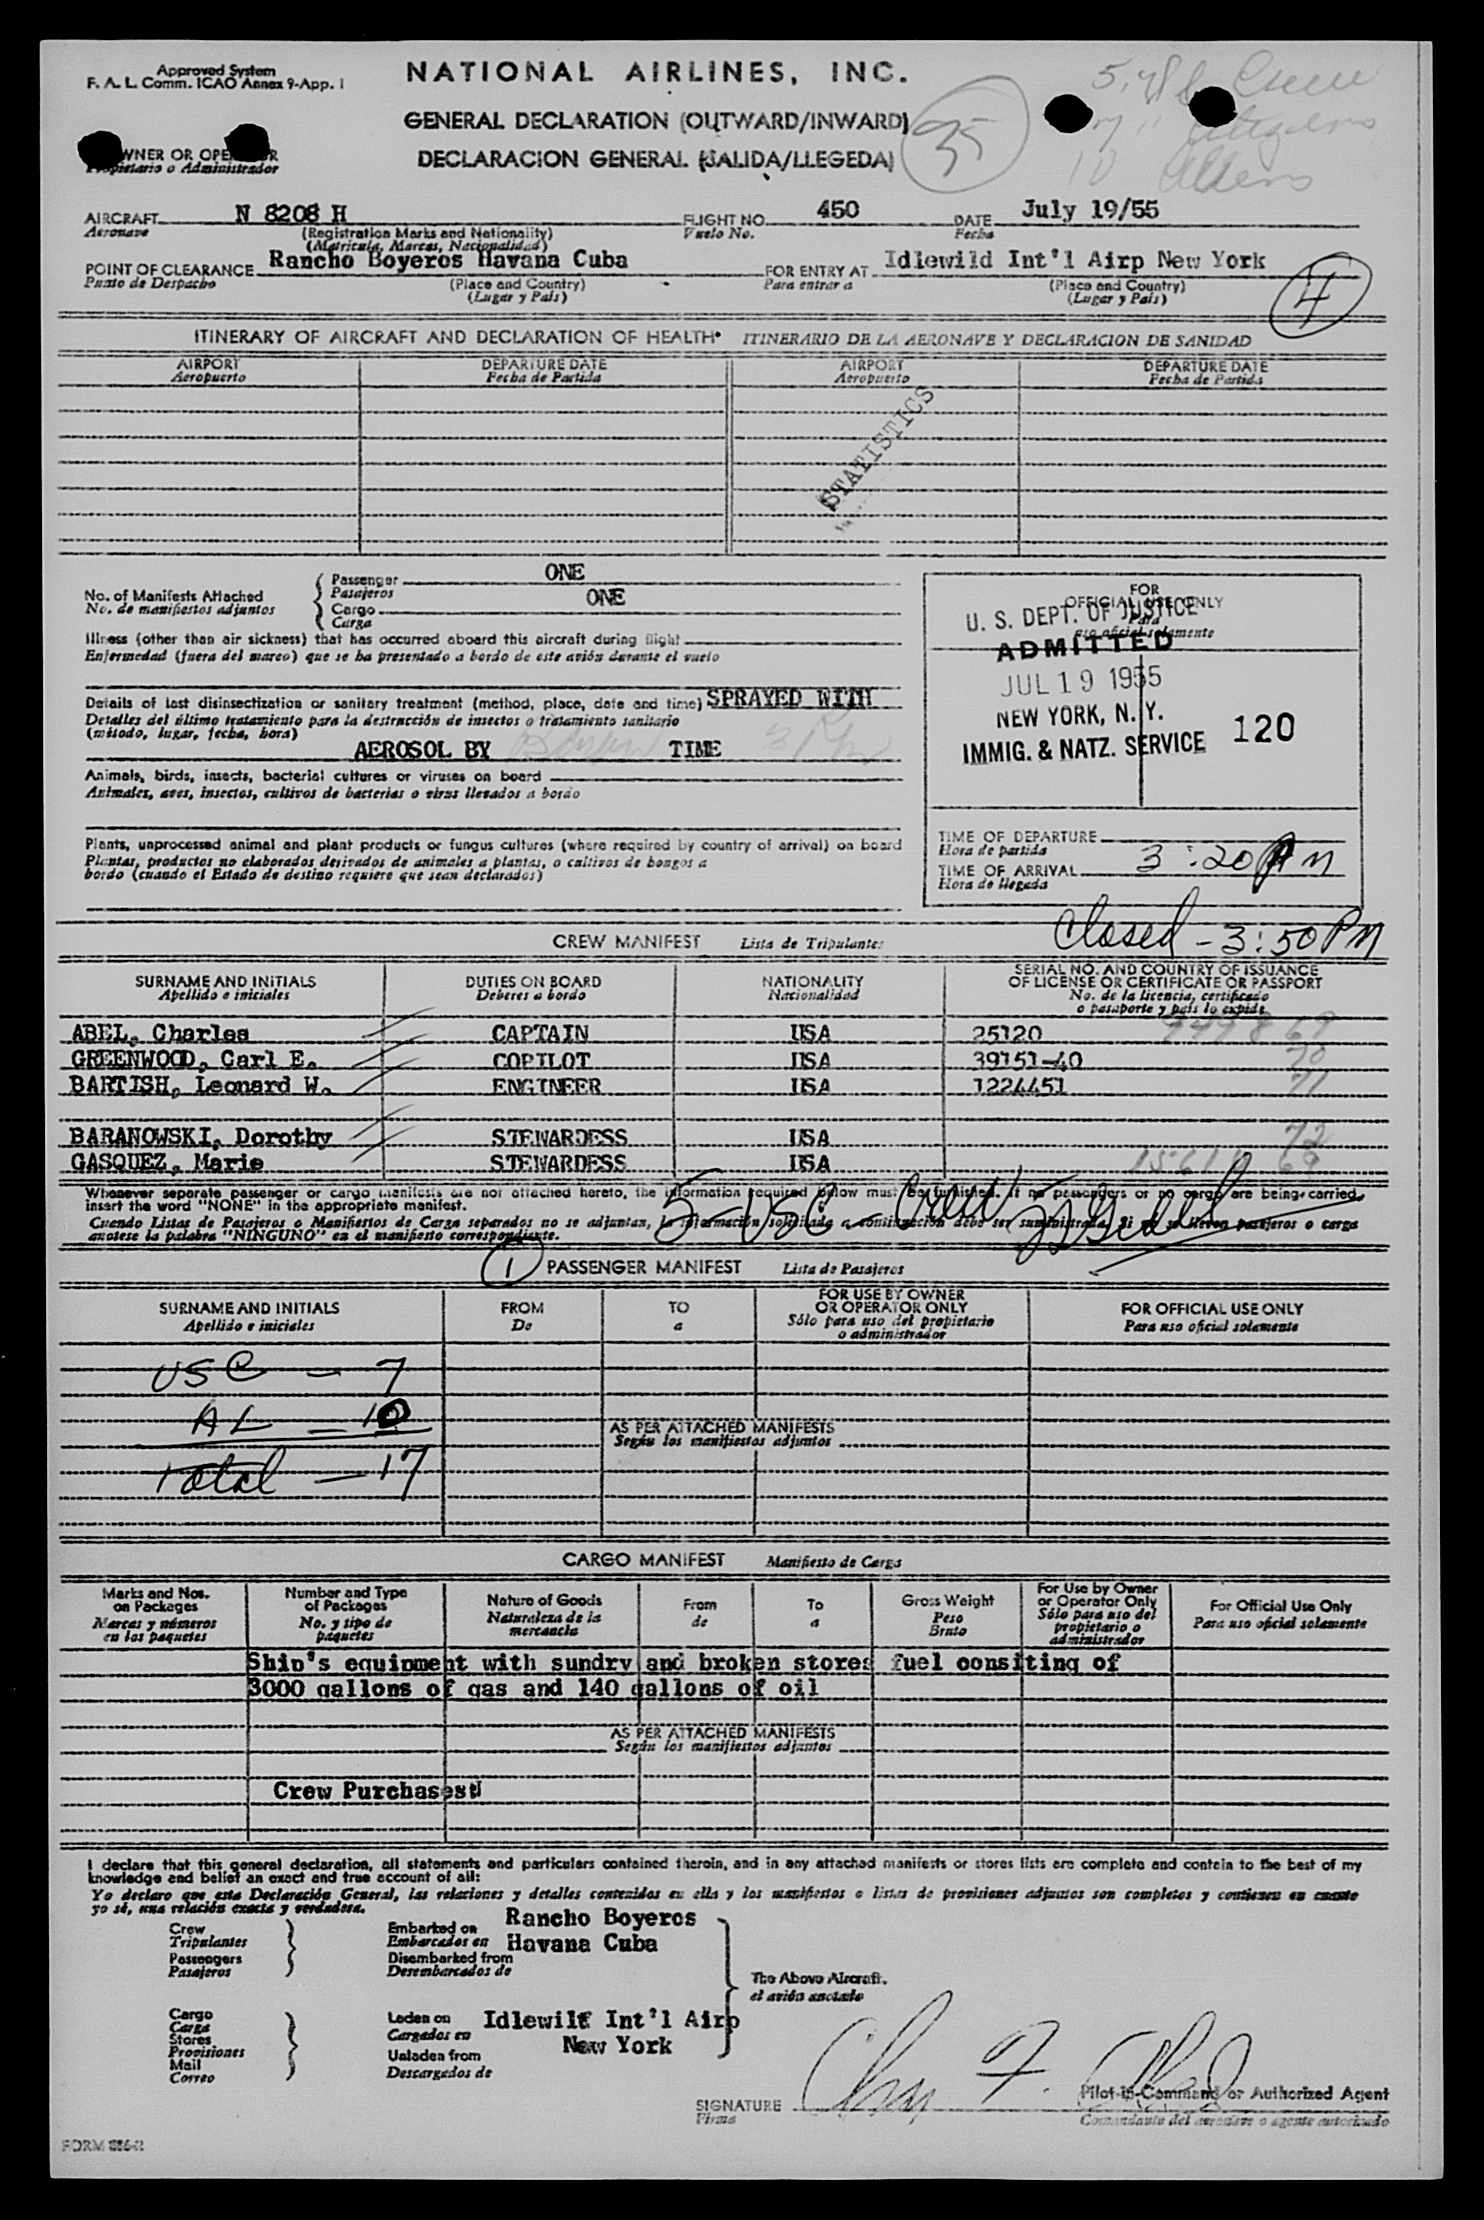 Approved System
F. A. L. Comm. ICAO Annex 9-App. I
NATIONAL AIRLINES, INC.
GENERAL DECLARATION (OUTWARD/INWARD)
DECLARACION GENERAL (SALIDA/LLEGEDA)
35
5. Crew
7 " Citizens
10 Aliens
OWNER OR OPERATOR
Propietario o Administrador
AIRCRAFT N 8208 H FLIGHT NO. 450 DATE July 19/55
Aeronave (Registration Marks and Nationality) Vuelo No. Fecha
(Matricula, Marcas, Nacionalidad)
POINT OF CLEARANCE Rancho Boyeros Havana Cuba FOR ENTRY AT Idlewild Int'l Airp New York
Punto de Despacho (Place and Country) Para entrar a (Place and Country)
(Lugar y País) (Lugar y País)
4
ITINERARY OF AIRCRAFT AND DECLARATION OF HEALTH* ITINERARIO DE LA AERONAVE Y DECLARACION DE SANIDAD
AIRPORT DEPARTURE DATE AIRPORT DEPARTURE DATE
Aeropuerto Fecha de Partida Aeropuerto Fecha de Partida
STATISTICS
No. of Manifests Attached Passenger ONE
No. de manifiestos adjuntos Pasajeros
Cargo ONE
Carga
Illness (other than air sickness) that has occurred aboard this aircraft during flight
Enfermedad (fuera del mareo) que se ha presentado a bordo de este avión durante el vuelo
Details of last disinsectization or sanitary treatment (method, place, date and time) SPRAYED WITH
Detalles del último tratamiento para la destrucción de insectos o tratamiento sanitario
(método, lugar, fecha, hora)
AEROSOL BY TIME 3 PM
Animals, birds, insects, bacterial cultures or viruses on board
Animales, aves, insectos, cultivos de bacterias o virus llevados a bordo
Plants, unprocessed animal and plant products or fungus cultures (where required by country of arrival) on board
Plantas, productos no elaborados derivados de animales a plantas, o cultivos de hongos a
bordo (cuando el Estado de destino requiere que sean declarados)
FOR
OFFICIAL USE ONLY
Para
uso oficial solamente
U. S. DEPT. OF JUSTICE
ADMITTED
JUL 19 1955
NEW YORK, N. Y.
IMMIG. & NATZ. SERVICE 120
TIME OF DEPARTURE
Hora de partida
TIME OF ARRIVAL 3:20 PM
Hora de llegada
Closed - 3:50 PM
CREW MANIFEST Lista de Tripulantes
SURNAME AND INITIALS DUTIES ON BOARD NATIONALITY SERIAL NO. AND COUNTRY OF ISSUANCE
Apellido e iniciales Deberes a bordo Nacionalidad OF LICENSE OR CERTIFICATE OR PASSPORT
No. de la licencia, certificado
o pasaporte y país lo expide
ABEL, Charles CAPTAIN USA 25120 69
GREENWOOD, Carl E. COPILOT USA 39151-40 70
BARTISH, Leonard W. ENGINEER USA 1224451 71
BARANOWSKI, Dorothy STEWARDESS USA 72
GASQUEZ, Marie STEWARDESS USA
Whenever separate passenger or cargo manifests are not attached hereto, the information required below must be furnished. If no passengers or no cargo are being carried,
insert the word "NONE" in the appropriate manifest.
Cuando Listas de Pasajeros o Manifiestos de Carga separados no se adjuntan, la información solicitada a continuación debe ser suministrada. Si no se llevan pasajeros o carga
anotese la palabra "NINGUNO" en el manifiesto correspondiente.
5-USC-Crew
1 PASSENGER MANIFEST Lista de Pasajeros
SURNAME AND INITIALS FROM TO FOR USE BY OWNER FOR OFFICIAL USE ONLY
Apellido e iniciales De a OR OPERATOR ONLY Para uso oficial solamente
Sólo para uso del propietario
o administrador
USC - 7
AL - 10
Total - 17
AS PER ATTACHED MANIFESTS
Según los manifiestos adjuntos
CARGO MANIFEST Manifiesto de Carga
Marks and Nos. Number and Type Nature of Goods From To Gross Weight For Use by Owner For Official Use Only
on Packages of Packages Naturaleza de la de a Peso or Operator Only Para uso oficial solamente
Marcas y números No. y tipo de mercancía Bruto Sólo para uso del
en los paquetes paquetes propietario o
administrador
Ship's equipment with sundry and broken stores fuel consiting of
3000 gallons of gas and 140 gallons of oil
AS PER ATTACHED MANIFESTS
Según los manifiestos adjuntos
Crew Purchases:
I declare that this general declaration, all statements and particulars contained therein, and in any attached manifests or stores lists are complete and contain to the best of my
knowledge and belief an exact and true account of all:
Yo declaro que esta Declaración General, las relaciones y detalles contenidos en ella y los manifiestos o listas de provisiones adjuntos son completos y contienen en cuanto
yo sé, una relación exacta y verdadera.
Crew Embarked on Rancho Boyeros
Tripulantes Embarcados en Havana Cuba
Passengers Disembarked from
Pasajeros Desembarcados de
The Above Aircraft.
el avión anotado
Cargo Laden on Idlewilf Int'l Airp
Carga Cargados en
Stores New York
Provisiones Unladen from
Mail Descargados de
Correo
SIGNATURE Chas F. Abel Pilot-in-Command or Authorized Agent
Firma Comandante del aeronave o agente autorizado
FORM 886-R